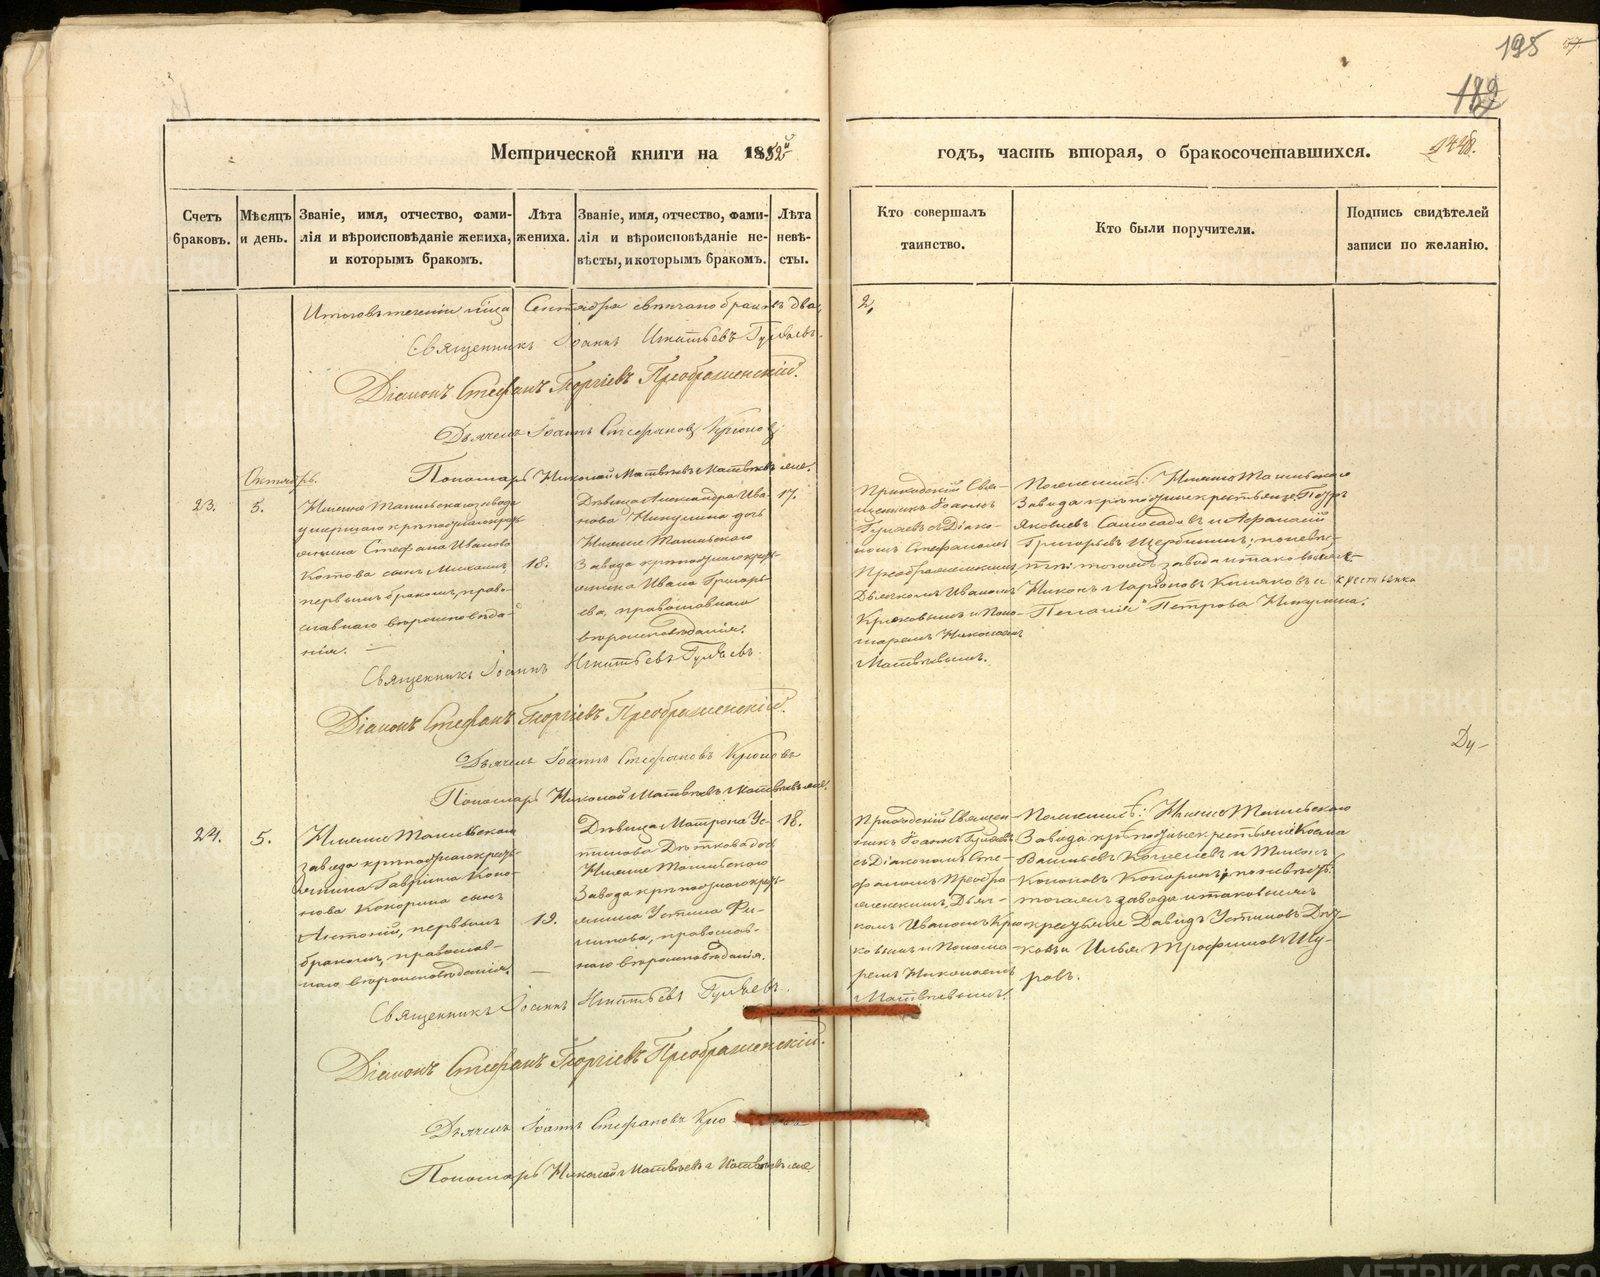 195
57.
182
Метрической книги на 1852й
годъ, часть вторая, о бракосочетавшихся.
Счетъ браковъ.
Мѣсяцъ и день.
Званіе, имя, отчество, фами-
лія и вѣроисповѣданіе жениха,
и которымъ бракомъ.
Лѣта
жениха.
Званіе, имя, отчество, фами-
лія и вѣроисповѣданіе не-
вѣсты, и которымъ бракомъ.
Лѣта
невѣ-
сты.
Кто совершалъ
таинство.
Кто были поручители.
Подпись свидѣтелей
записи по желанію.
Итого въ теченіи м͠ца Сентября свѣнчано браковъ два, 2,
Священникъ Іоаннъ Игнатьевъ Гуляевъ.
Діаконъ Стефанъ Георгіевъ Преображенскій.
Дьячекъ Іоаннъ Стефановъ Крюковъ
Пономарь Николай Матвѣевъ
Октябрь.
23.
5.
Нижне Тагильскаго завода
умершаго крѣпостнаго кресть-
янина Стефана Иванова
Котова сынъ Михаилъ,
первымъ бракомъ, право-
славнаго вѣроисповѣда-
нія.
18.
Дѣвица Александра Ива-
нова Никулина дочь
Нижне Тагильскаго
Завода крѣпостнаго кресть-
янина Ивана Григорь-
ева, православнаго
вѣроисповѣданія.
17.
Приходскій Свя-
щенникъ Іоаннъ
Гуляевъ съ Діако-
номъ Стефаномъ
Преображенскимъ
Дьячкомъ Иваномъ
Крюковымъ и Поно-
маремъ Николаемъ
Матвѣевымъ.
По женихѣ: Нижне Тагильскаго
Завода крѣпостные крестьяне Петръ
Яковлевъ Самосадовъ и Афанасій
Григорьевъ Щербининъ; по невѣс-
тѣ: тогоже завода и таковыеже
Никонъ Ларіоновъ и крестьянка
Пелагія Петрова Никулина.
Священникъ Іоаннъ Игнатьевъ Гуляевъ.
Діаконъ Стефанъ Георгіевъ Преображенскій.
Дьячекъ Іоаннъ Стефановъ Крюковъ
Пономарь Николай Матвѣевъ
Ду-
24.
5.
Нижне Тагильскаго
завода крѣпостнаго кресть-
янина Гавріила Коно-
нова Кокорина сынъ
Антоній, первымъ
бракомъ, православ-
наго вѣроисповѣданія.
19.
Дѣвица Матрона Ус-
тинова Дѣткова дочь
Нижне Тагильскаго
Завода крѣпостнаго кресть-
янина Устина Фи-
липова, православ-
наго вѣроисповѣданія.
18.
Приходскій Священ-
никъ Іоаннъ Гуляевъ
съ Діакономъ Сте-
фаномъ Преобра-
женскимъ, Дьяч-
комъ Иваномъ Крю-
ковымъ и Понома-
ремъ Николаемъ
Матвѣевымъ.
По женихѣ: Нижне Тагильскаго
Завода крѣпостные крестьяне Косма
Васильевъ и Тихонъ
Кононовъ Кокоринъ; по невѣстѣ:
тогоже завода и таковыеже
крестьяне Давидъ Устиновъ Дѣт-
ковъ и Илья Трофимовъ Щу-
ровъ.
Священникъ Іоаннъ Игнатьевъ Гуляевъ.
Діаконъ Стефанъ Георгіевъ Преображенскій.
Дьячекъ Іоаннъ Стефановъ Крюковъ
Пономарь Николай Матвѣевъ
METRIKI.GASO-URAL.RU